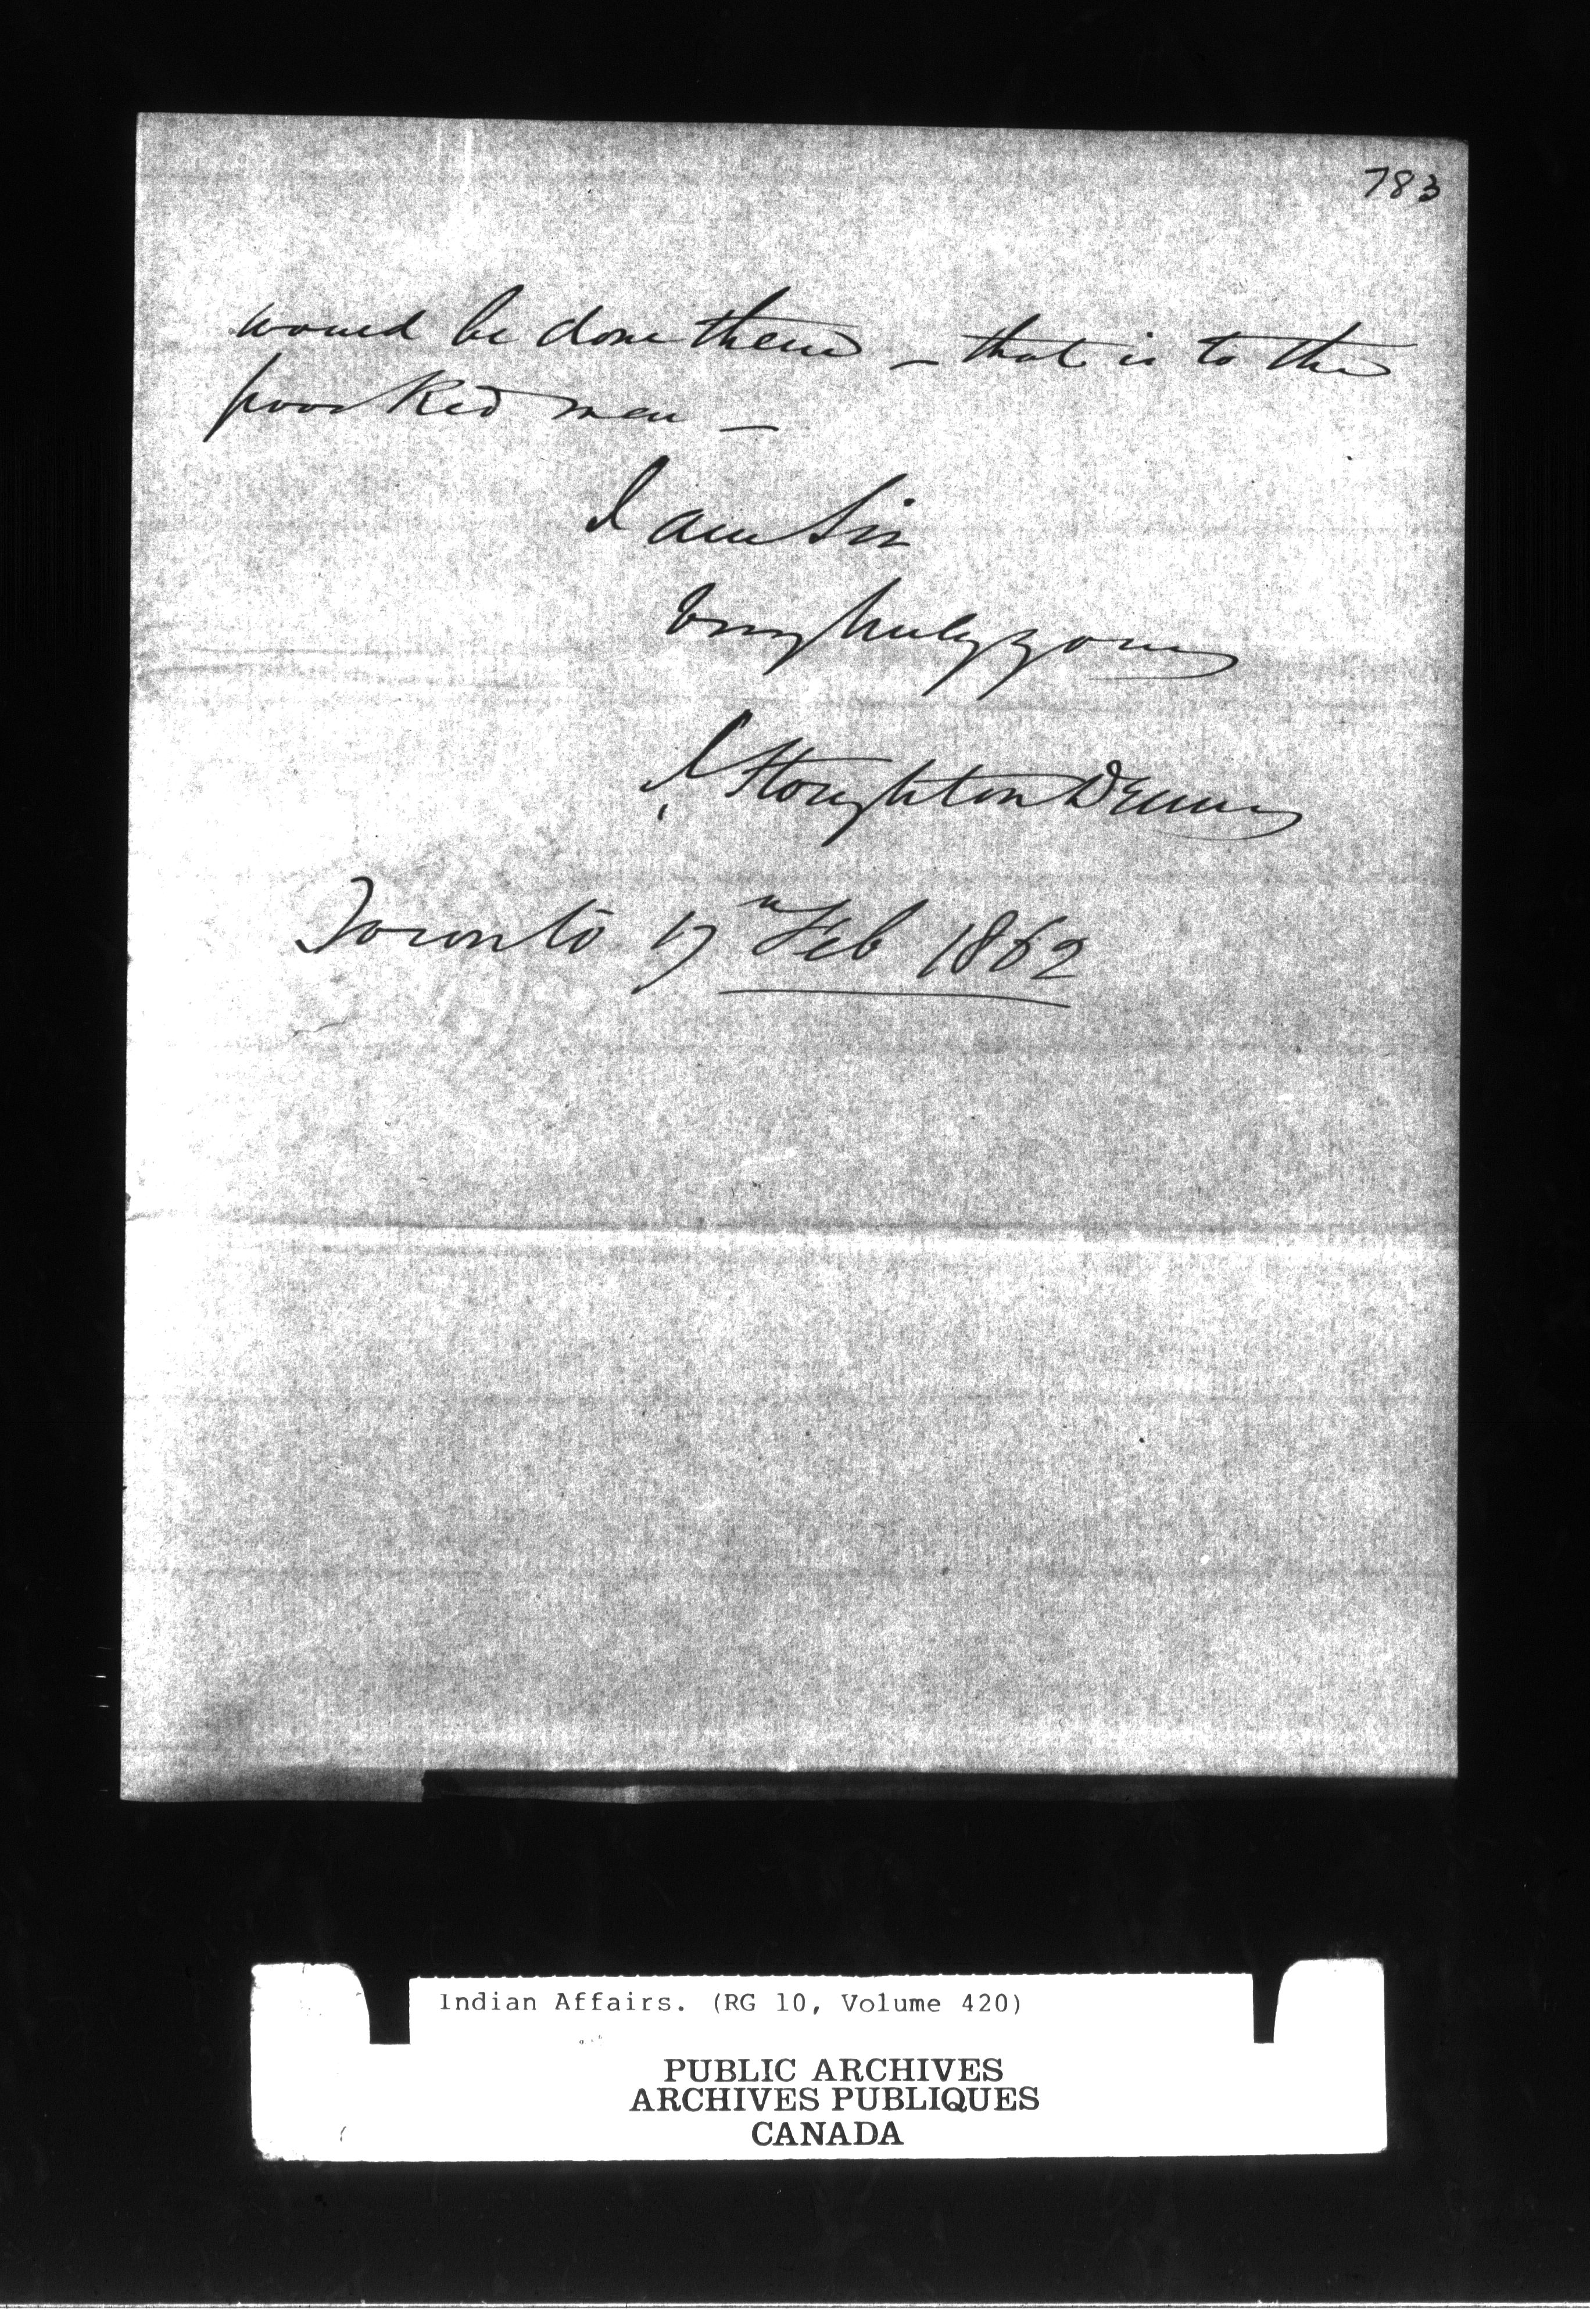 783
would be done them – that is to the
poor Red men –
I am Sir
Very truly yours
J Stoughton Dennis
Toronto 17th Feb 1862
Indian Affairs. (RG 10, Volume 420)
PUBLIC ARCHIVES
ARCHIVES PUBLIQUES
CANADA